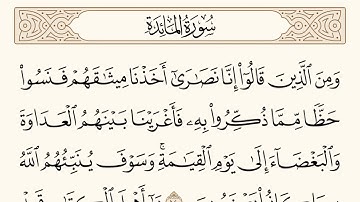 سُورَةُ المَائِدَة
وَمِنَ ٱلَّذِينَ قَالُوٓا۟ إِنَّا نَصَـٰرَىٰٓ أَخَذْنَا مِيثَـٰقَهُمْ فَنَسُوا۟
حَظًّا مِّمَّا ذُكِّرُوا۟ بِهِۦ فَأَغْرَيْنَا بَيْنَهُمُ ٱلْعَدَاوَةَ
وَٱلْبَغْضَآءَ إِلَىٰ يَوْمِ ٱلْقِيَـٰمَةِ ۚ وَسَوْفَ يُنَبِّئُهُمُ ٱللَّهُ